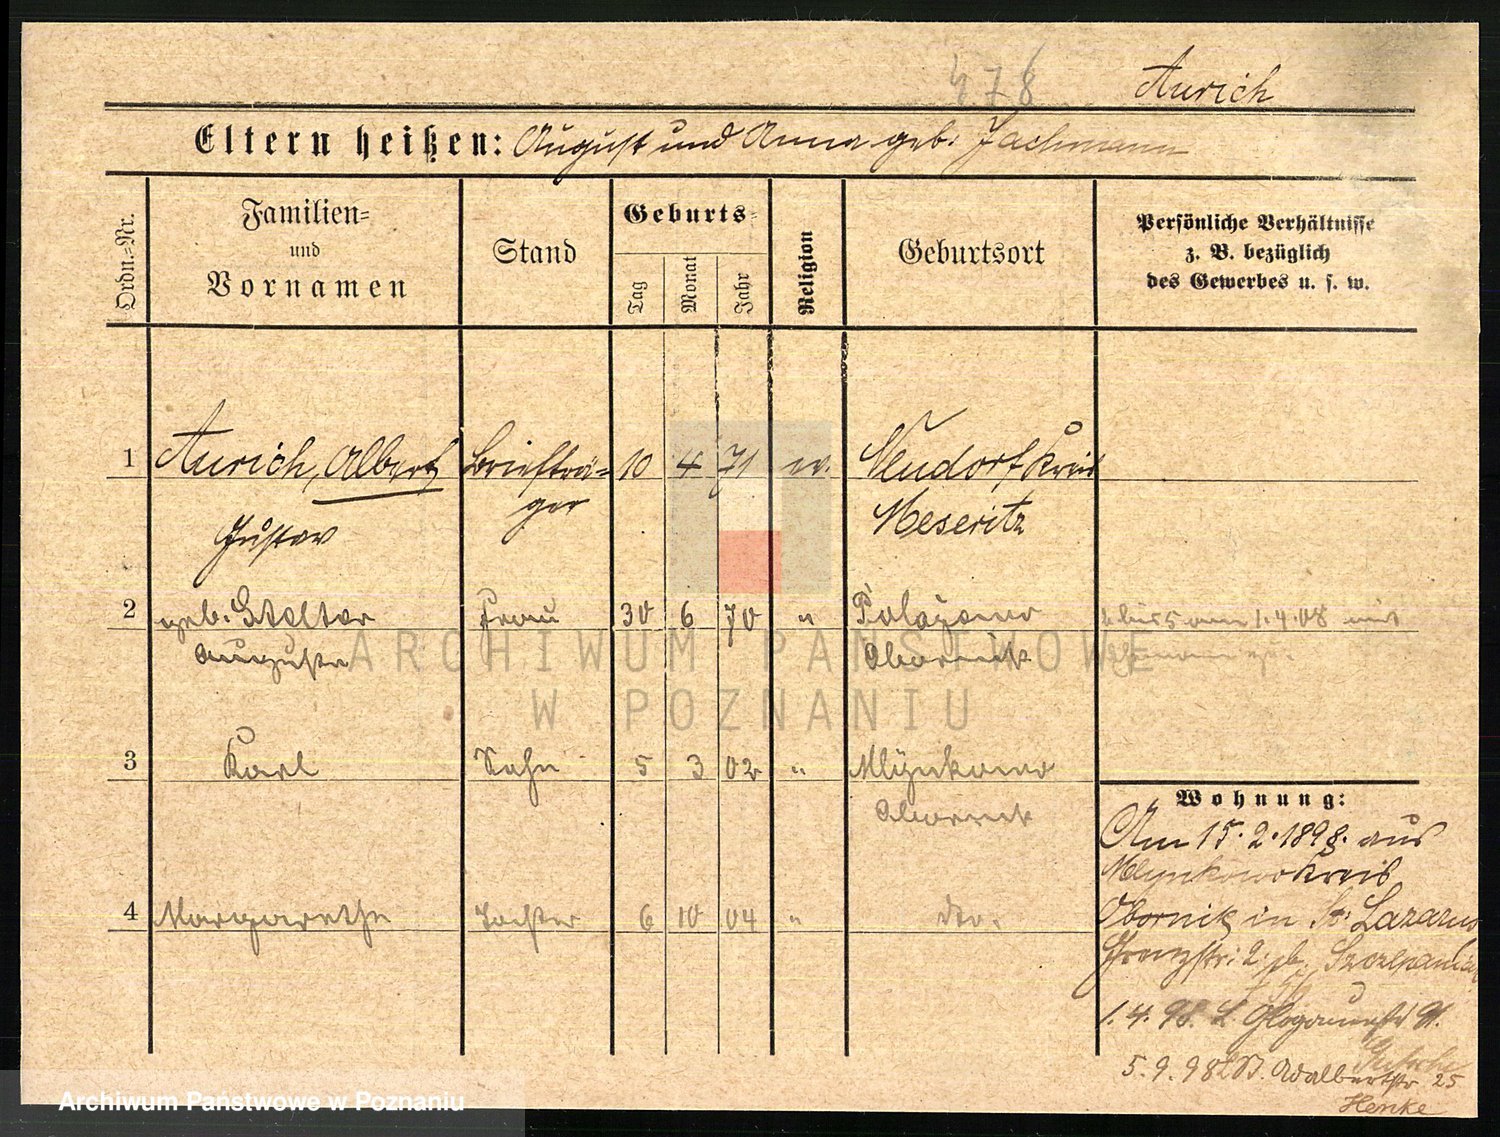 478 Aurich
Eltern heißen: August und Anna geb. Jachmann
Ordn.=Nr.
Familien=
und
Vornamen
Stand
Geburts=
Tag
Monat
Jahr
Religion
Geburtsort
Persönliche Verhältnisse
z. B. bezüglich
des Gewerbes u. s. w.
1 Aurich, Albert Briefträ= 10 4 71 ev. Neudorf Kreis
Gustav ger Meseritz
2 geb. Frau 30 6 70 " 1.4.08 mit
Auguste Obornik
ARCHIWUM PAŃSTWOWE
W POZNANIU
3 Karl Sohn 5 3 02 " Mlynkowo
Obornik
4 Margarethe Tochter 6 10 04 " dto.
Wohnung:
Am 15.2.1898. aus
Mlynkowo Kreis
Obornik in St. Lazarus
Grenzstr. 2 b.
1.4.98. L. Glogauerstr 91.
5.9.98 Adalbertstr 25
Henke
Archiwum Państwowe w Poznaniu